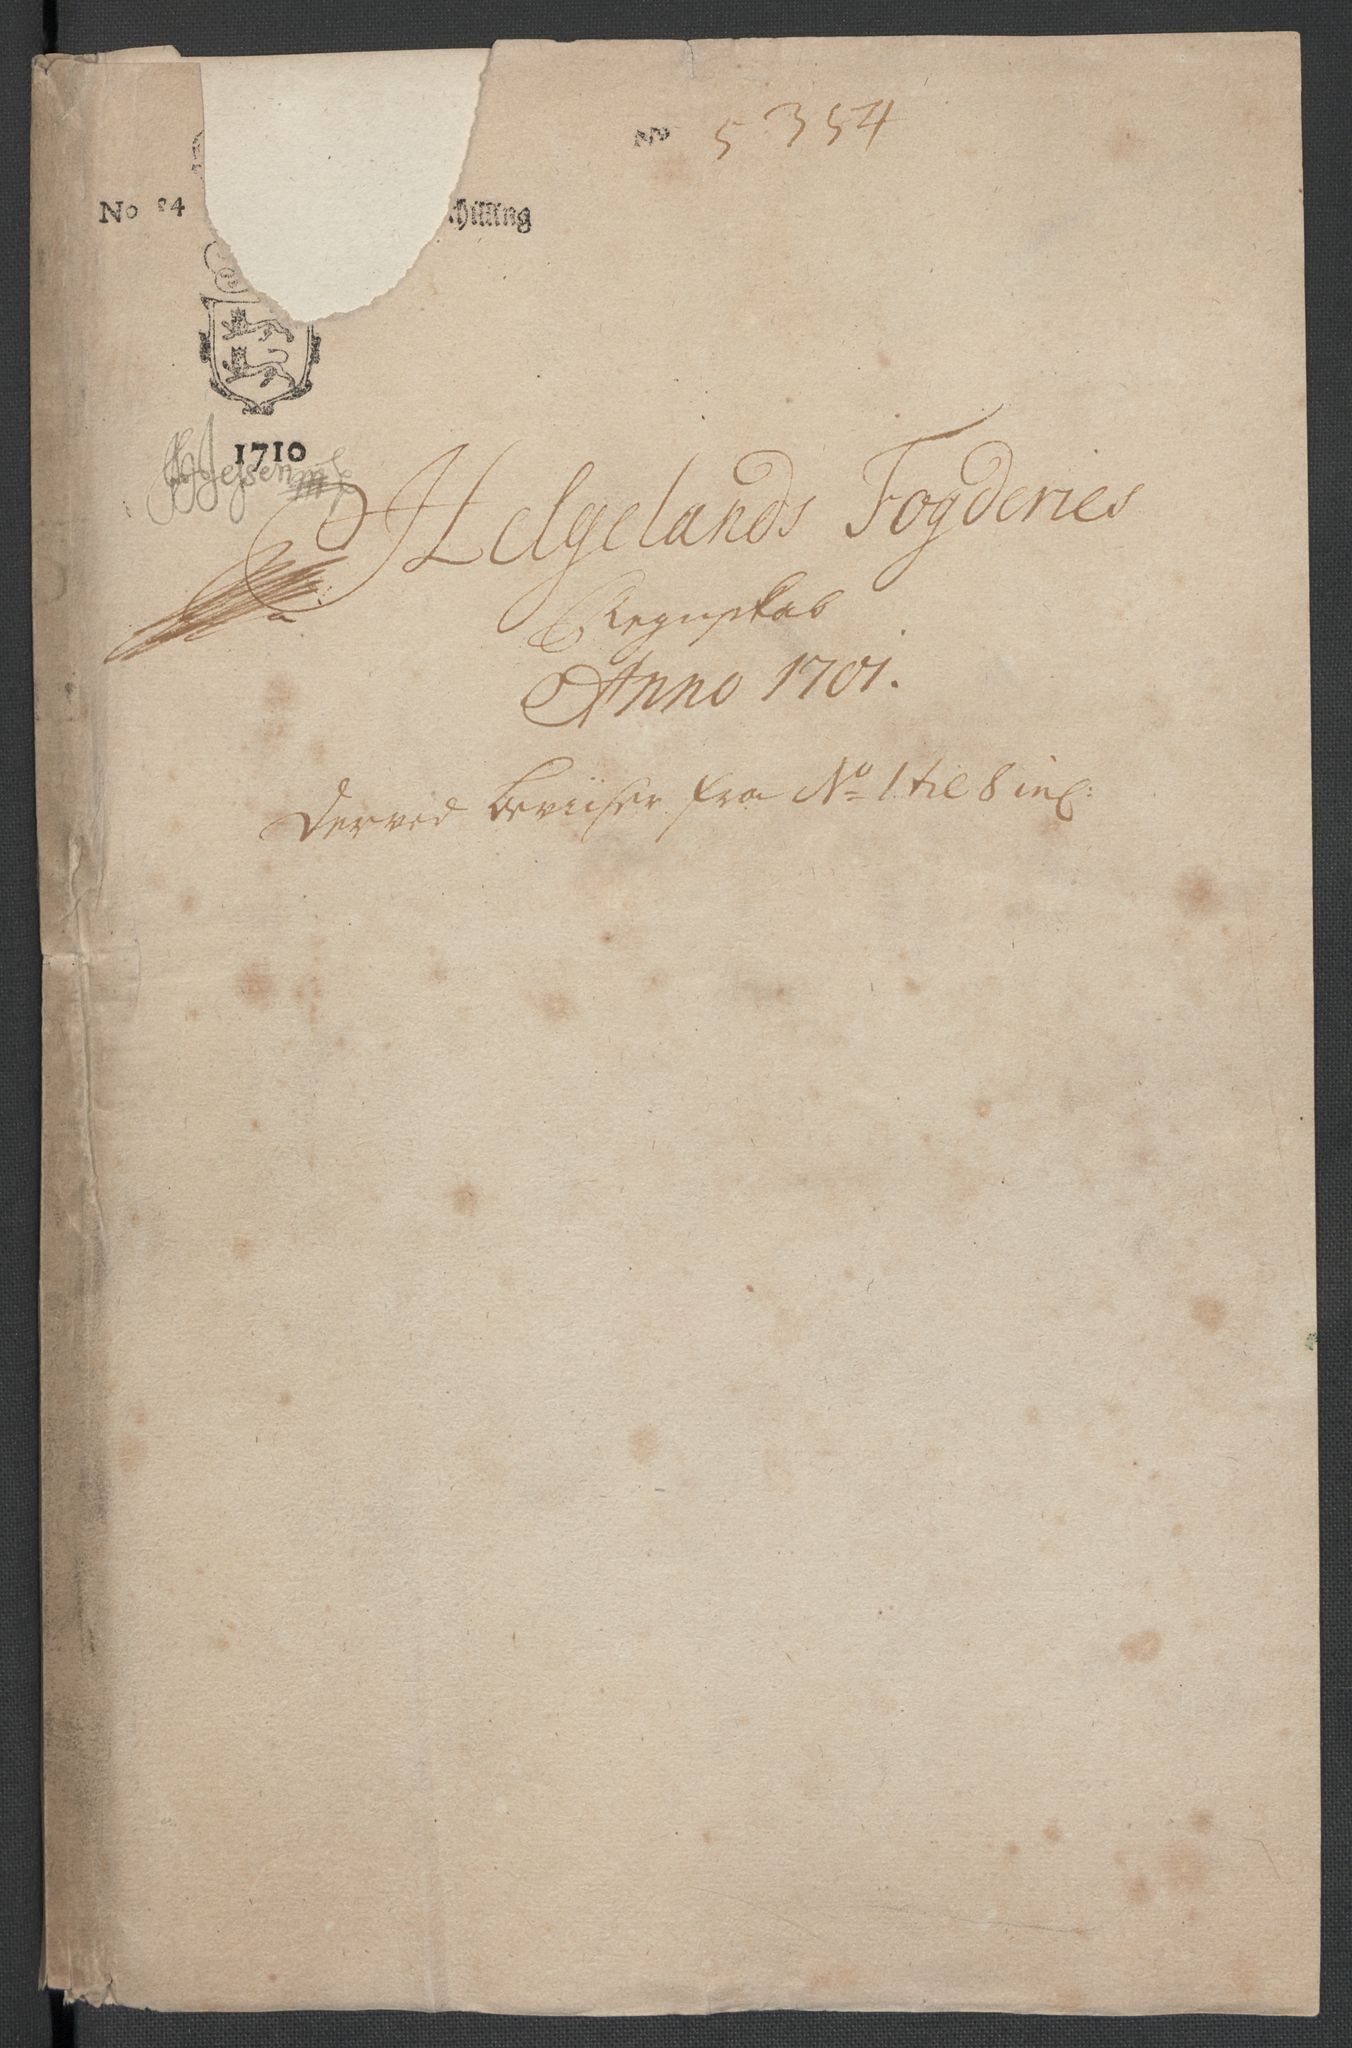 No 5354
No 24 chilling
1710
Helgelands Fogderies
Regnskab
Anno 1701.
Derved beviiser fra No 1 til 8 incl: